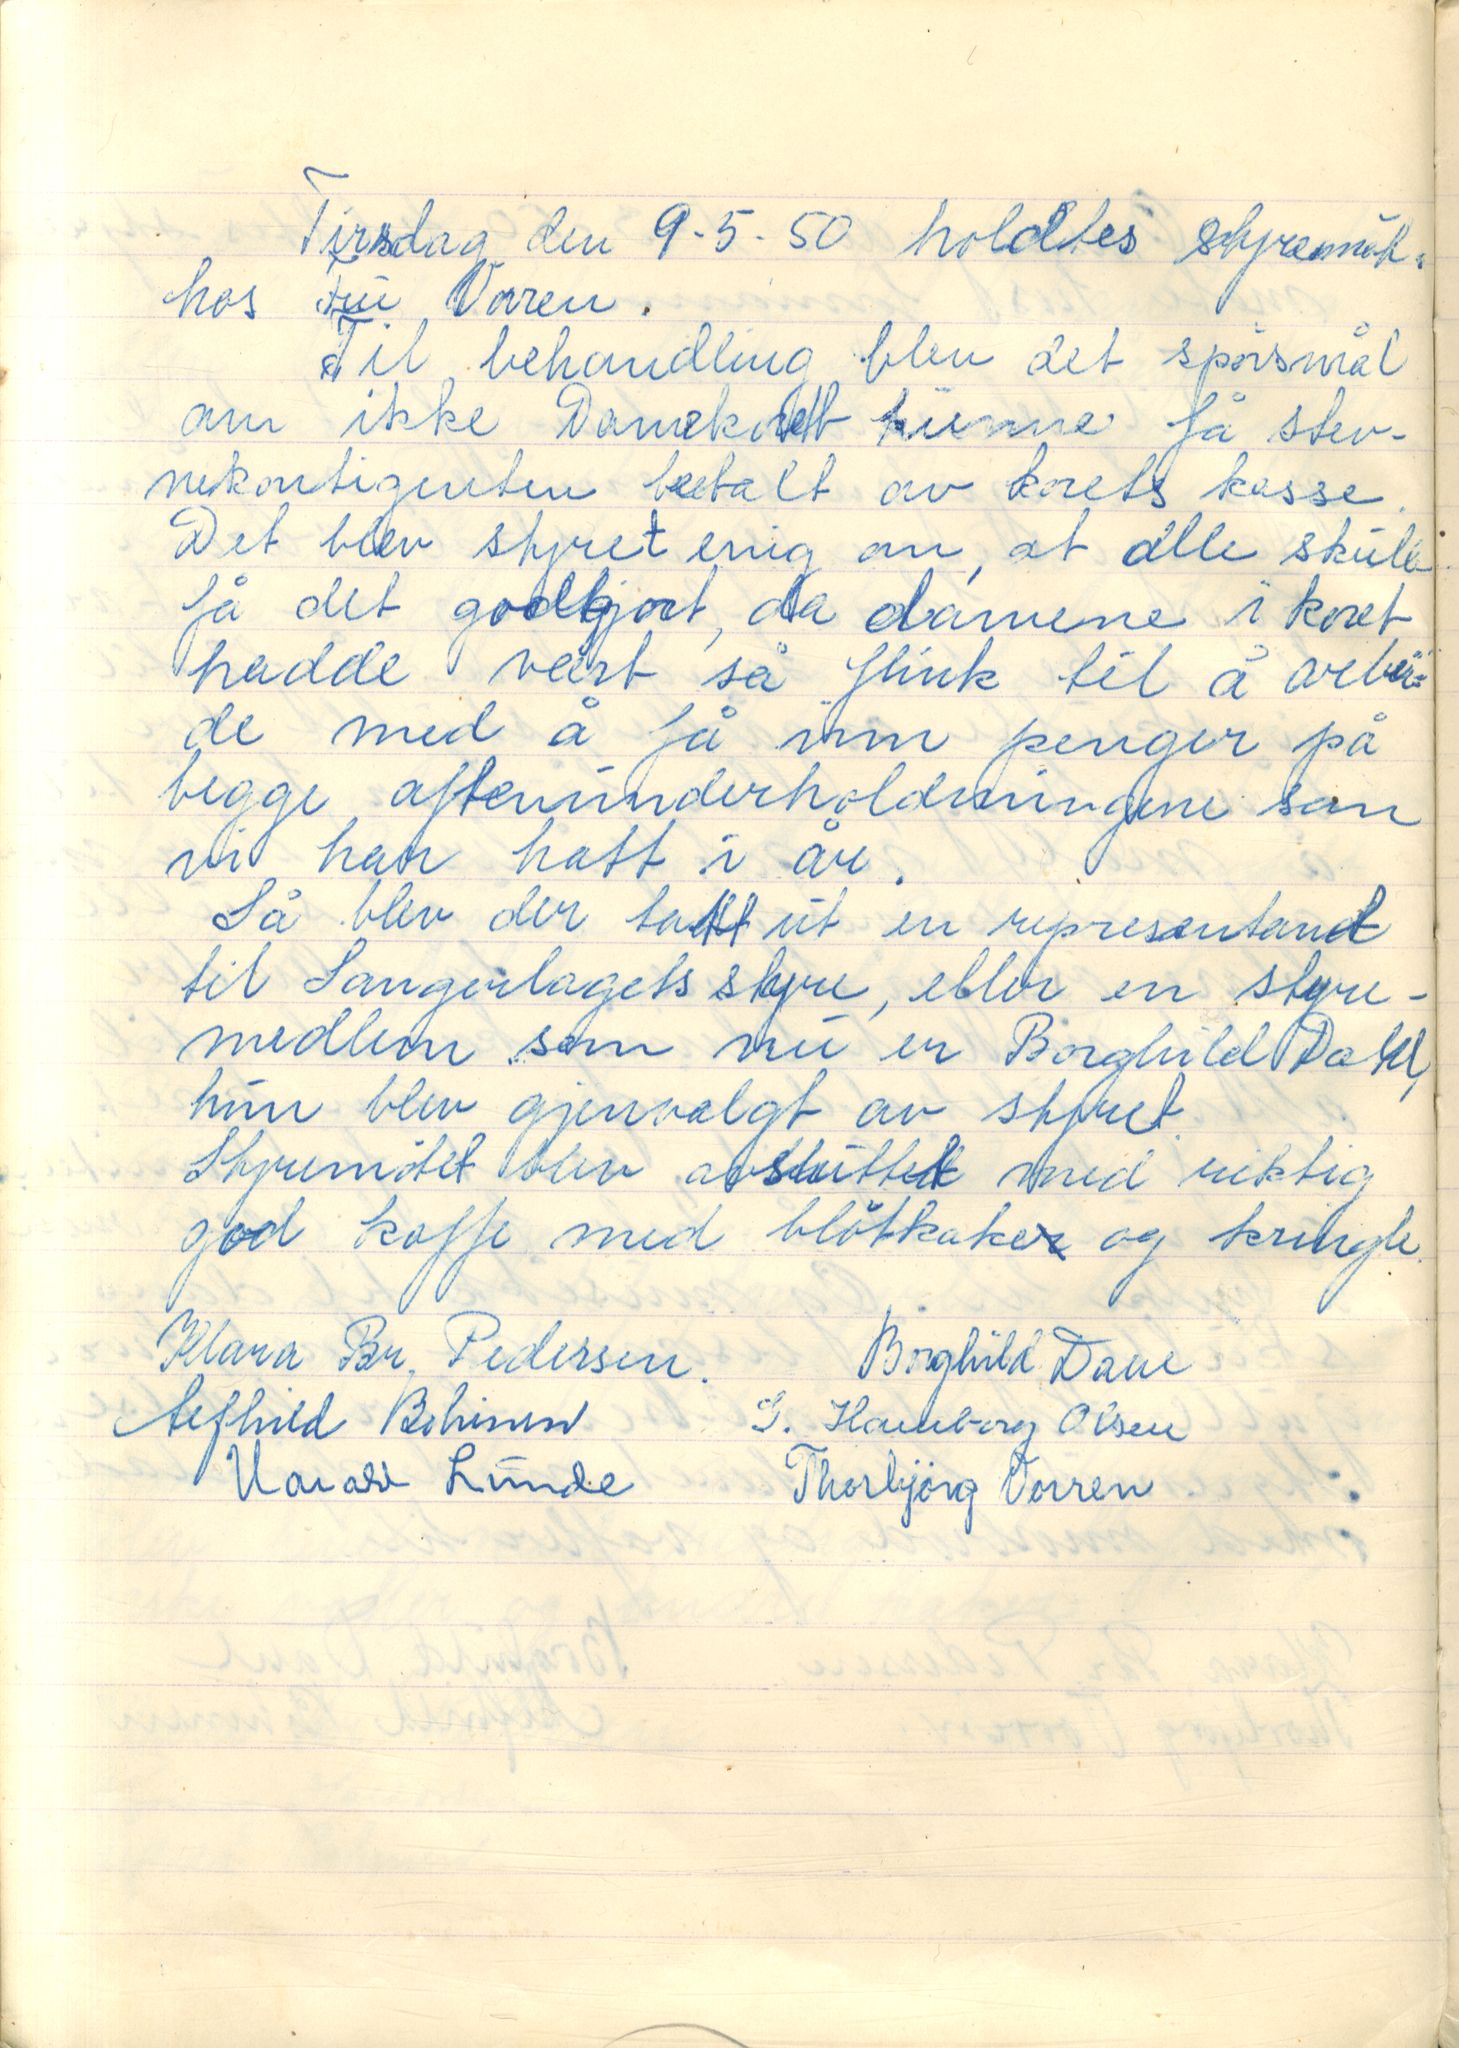 Tirsdag den 9-5-50 holdtes styremöt.
hos Fru Vorren.
Til behandling blev det spörsmål
om ikke Damekoret kunne få stev-
nekontigenten betalt av korets kasse.
Det blev styret enig om, at alle skulle
få det godtgjort, da damene i koret
hadde vært så flink til å arbei-
de med å få inn penger på
begge aftenunderholdningene som
vi har hatt i år.
Så blev der tatt ut en representant
til Sangerlagets styre, eller en styre-
medlem som nu er Borghild Dahl,
hun blev gjenvalgt av styret.
Styremötet blev avsluttet med riktig
god kaffe med blötkake og kringle.
Klara Br. Pedersen. Borghild Dahl
Alfhild G. Hamborg Olsen
Harald Lunde Thorbjörg Vorren